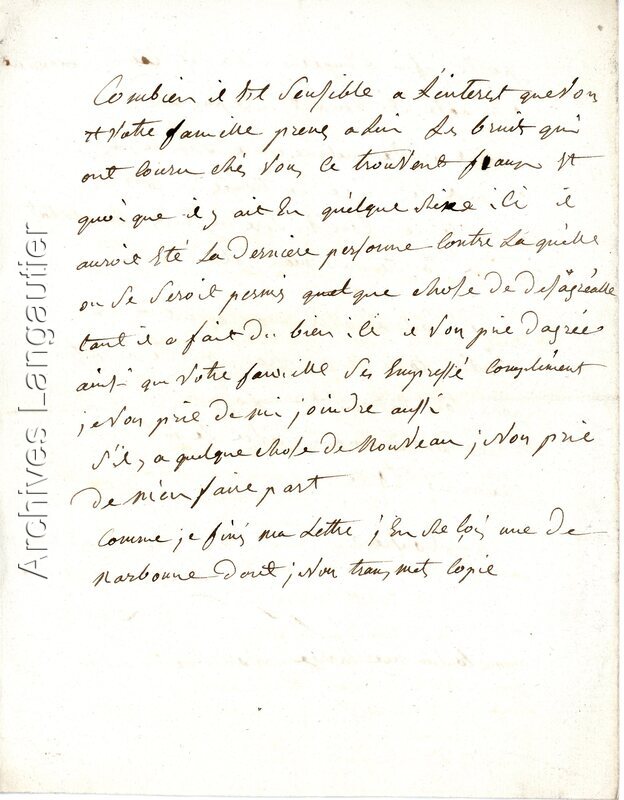 Combien il est sensible a l'interest que vou
et votre famille prenes a lui les bruit qui
ont couru chés vous ce trouvent faux et
quoi que il y ait en quelque chose ici il
auroit été la derniere personne contre la quelle
on se seroit permis quelque chose de desagréable
tant il a fait du bien ici il vou prie d'agréer
ainsi que votre famille ses empressé compliment
je vou prie de mi joindre aussi
s'il y a quelque chose de nouveau je vou prie
de m'en faire part
comme je finis ma lettre j'en reçois une de
narbonne dont je vou transmet copie
Archives Langautier